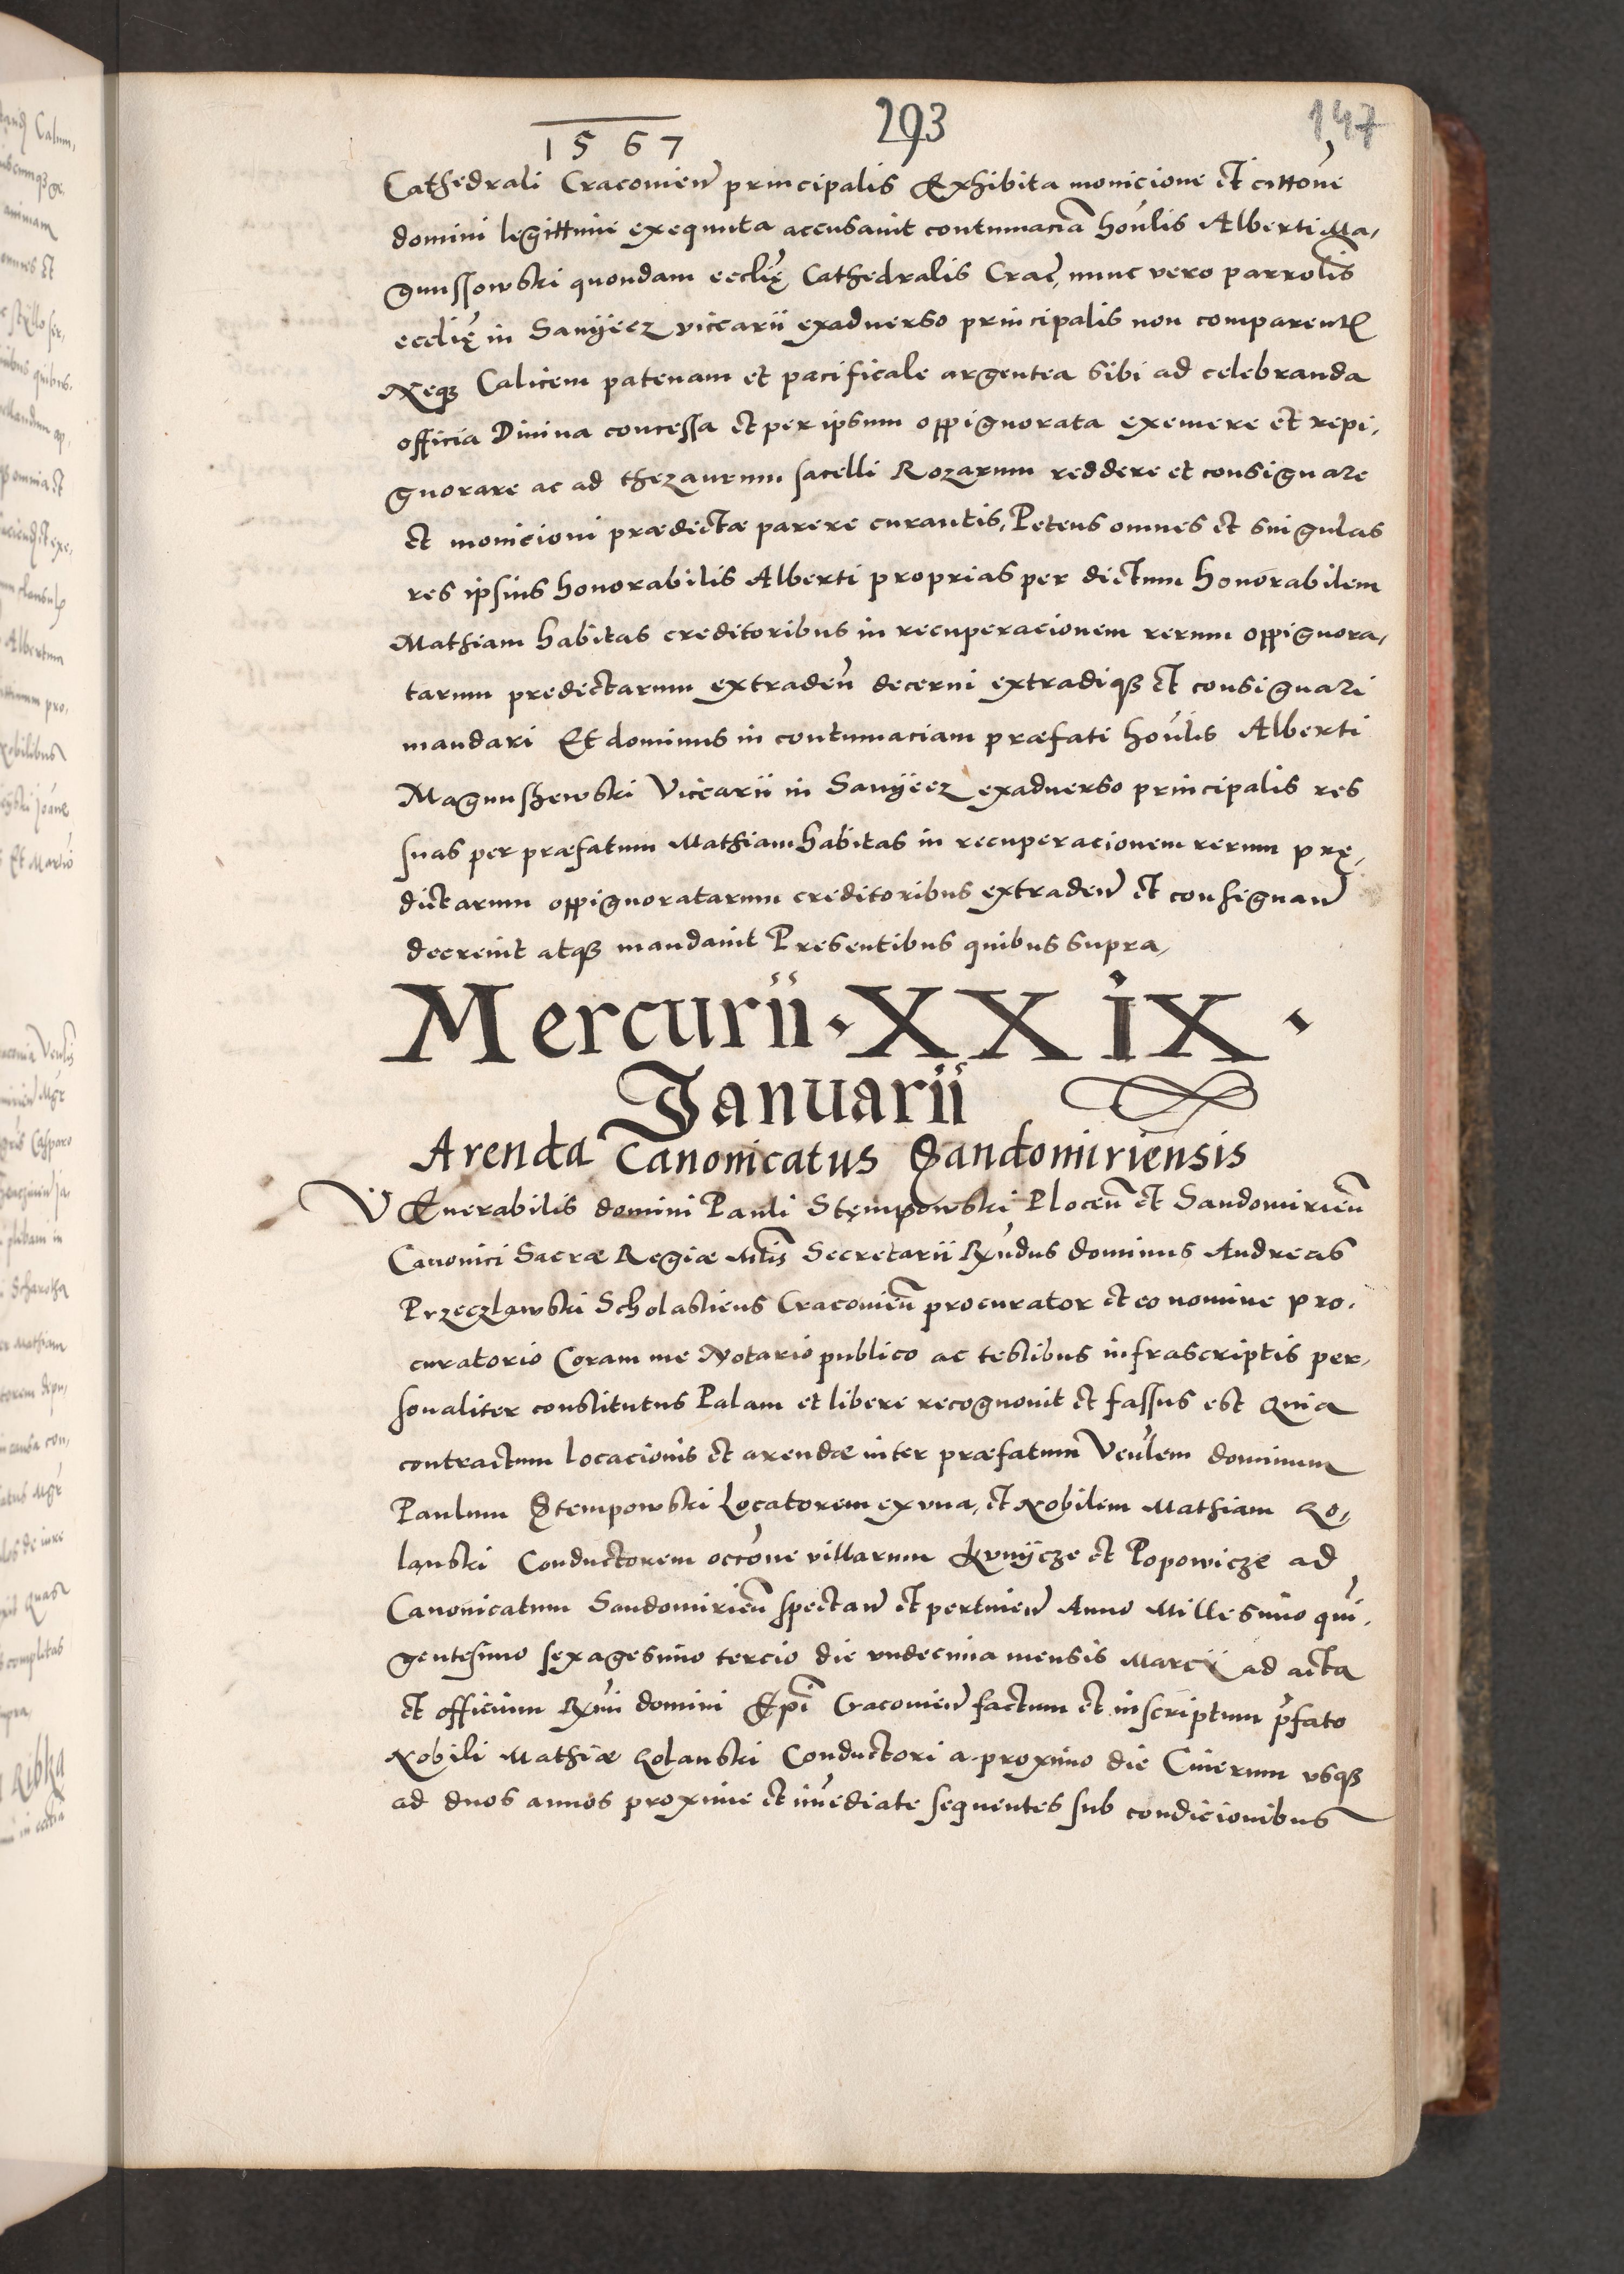 1567
293
147
Cathedrali Cracovien̄ principalis Exhibita monicione et cittōne
domini legittime exequuta accusavit contumaciā hoūlis Alberti Ma,
gnussowski quondam ecclię̄ Cathedralis Crac̄, nunc vero parrōlis
ecclię̄ in Sanÿecz vicearii exadverso principalis non comparentis
Neqȝ Calicem patenam et pacificale argentea sibi ad celebranda
officia Divina concessa et per ipsum oppignorata exemere et repi,
gnorare ac ad thezaurum sacelli Rozarum reddere et consignare
et monicioni prædictæ parere curantis, Petens omnes et singulas
res ipsius honorabilis Alberti proprias per dictum honorabilem
Mathiam habitas creditoribus in recuperacionem rerum oppignora,
tarum predictarum extraden̄ decerni extradiqȝ et consignari
mandari Et dominus in contumaciam præfati hoūlis Alberti
Magnushewski Vicearii in Sanÿecz exadverso principalis res
suas per præfatum Mathiam habitas in recuperacionem rerum prę,
dictarum oppignoratarum creditoribus extraden̄ et consignan̄
decrevit atqȝ mandavit Presentibus quibus supra,
Mercurii · XX IX ·
Januarii
Arenda Canonicatus Sandomiriensis
VEnerabilis domini Pauli Stęmpowski Plocen̄ et Sandomirien̄
Canonici Sacræ Regiæ Mtīs Secretarii Rn̄dus dominus Andreas
Przeczlawski Scholasticus Cracovien̄ procurator et eo nomine pro,
curatorio Coram me Notario publico ac testibus infrascriptis per,
sonaliter constitutus Palam et libere recognovit et fassus est Quia
contractum locacionis et arendæ inter præfatum Veūlem dominum
Paulum Stempowski Locatorem ex una, et Nobilem Mathiam Ro,
lanski Conductorem occōne villarum Kunÿcze et Popowicze ad
Canonicatum Sandomirien̄ spectan̄ et pertinen̄ Anno Millesimo qui,
gentesimo sexagesimo tercio die undecima mensis Marcÿ ad acta
et officium Rm̄i domini Ep̄i Cracovien̄ factum et inscriptum p̄fato
Nobili Mathiæ Rolanski Conductori a proximo die Cinerum usqȝ
ad duos annos proxime et im̄ediate sequentes sub condicionibus